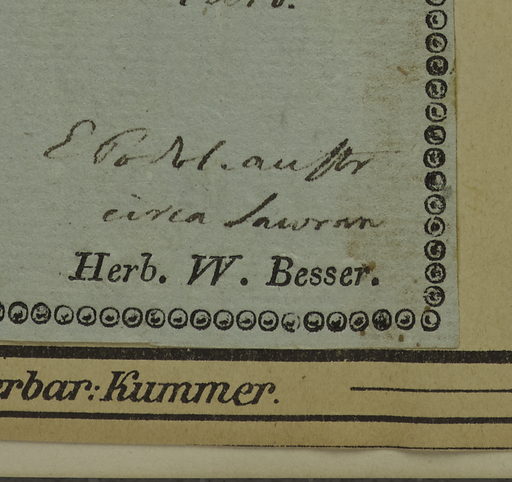 E Podol. austr
circa Sawran
Herb. W. Besser.
erbar: Kummer.